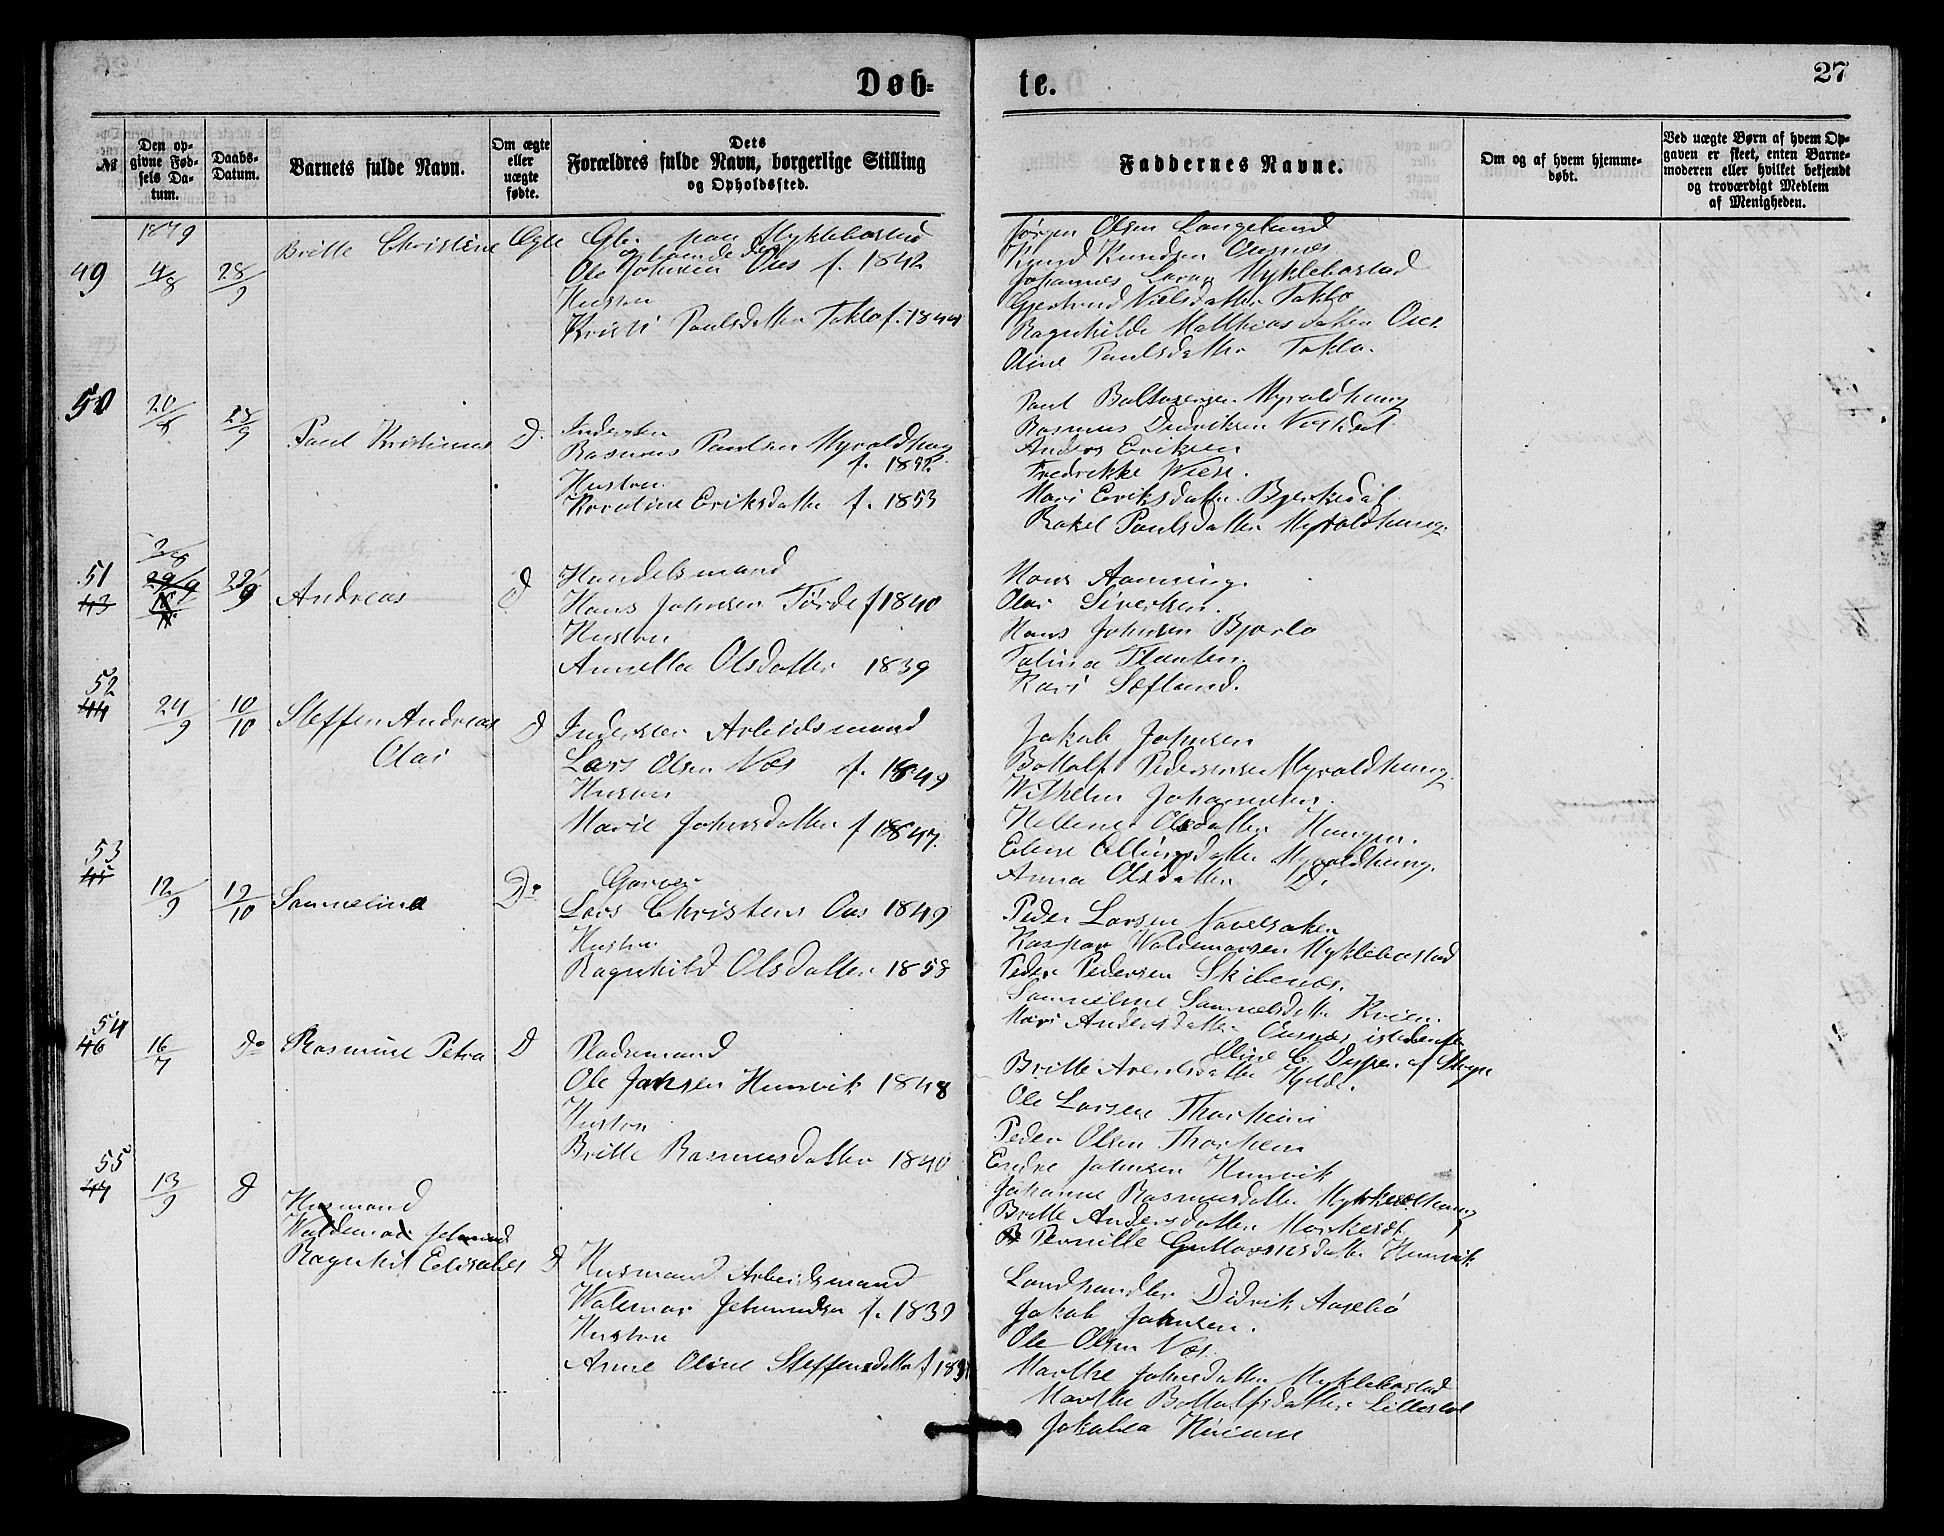 Døb-
te.
27
№
Den op-
givne Fød-
sels Da-
tum.
Daabs-
Datum.
Barnets fulde Navn.
Om ægte
eller
uægte
fødte.
Dets
Forældres fulde Navn, borgerlige Stilling
og Opholdssted.
Faddernes Navne.
Om og af hvem hjemme-
døbt.
Ved uægte Børn af hvem Op-
gaven er skeet, enten Barne-
moderen eller hvilket bekjendt
og troværdigt Medlem
af Menigheden.
1879
49
4/8
28/9
Britte Christine
Ægte
paa Myklebostad
Ole Johnsen Oies f. 1842
Hustru
Kristi Paulsdatter Taklo f. 1844
Jørgen Olsen Langeland
Knud Knudsen
Johannes Myklebostad
Gjertrud Nielsdatter Taklo
Ragnhilde Matthiasdatter Oies
Oline Paulsdatter Taklo.
50
20/8
28/9
Paul Kristianus
D.
Inderster
Rasmus Paulsen Myroldhoug
Hustru
Karoline Eriksdatter f. 1853
Paul Baltasersen Myroldhoug
Rasmus Didriksen
Anders Eriksen
Fredrikke Wiese.
Mari Eriksdatter Bjerkedal
Rakel Paulsdatter Myroldhoug.
51
43
3/8
29/9
28/9
Andreas
D
Handelsmand
Hans Johnsen Førde f 1840
Hustru
Olsdatter 1839
Hans
Olai Siversen.
Hans Johnsen Bjørlo
Kari Sætland.
52
44
24/9
10/10
Steffen Andreas
Olai
D
Inderster Arbeidsmand
Lars Olsen Næs f. 1849
Hustru
Marie Johnsdatter f 1847
Jakob Johnsen
Bottolf Pedersen Myroldhoug
Wilhelm
Hellene Olsdatter Haugen.
Eline Ellingsdatter Myroldhoug.
Anna Olsdatter D.
53
45
12/9
12/10
Samueline
Do
Garver
Lars Christens Oas 1849
Hustru
Ragnhild Olsdatter 1858
Peder Larsen Navelsaker
Kaspar Waldemarsen Myklebostad
Peder Pedersen Skibenes.
Samueline Samuelsdatter Kvien.
Mari Andersdatter istedenfor
Oline C.
54
46
16/7
Do
Rasmine Petra
D
Ole Jansen Hunvik 1848
Hustru
Britte Rasmusdatter 1840
Britte Arentsdatter Hjelle.
Ole Larsen Thorheim
Peder Olsen Thorheim
Endre Johnsen Hunvik
Johanne Rasmusdatter
Britte Andersdatter
Pernille Gustavsdatter Hunvik
55
47
13/9
D
Husmand
Waldemar
Ragnhil Elisabet
D
Husmand Arbeidsmand
Walemar Jetmundsen f. 1839
Hustru
Anne Oline Steffensdatter f
Landhandler Didrik Aasebø
Jakob Johnsen.
Ole Olsen Næs
Marthe Johnsdatter Myklebostad
Marthe Bottolfsdatter
Jakobea